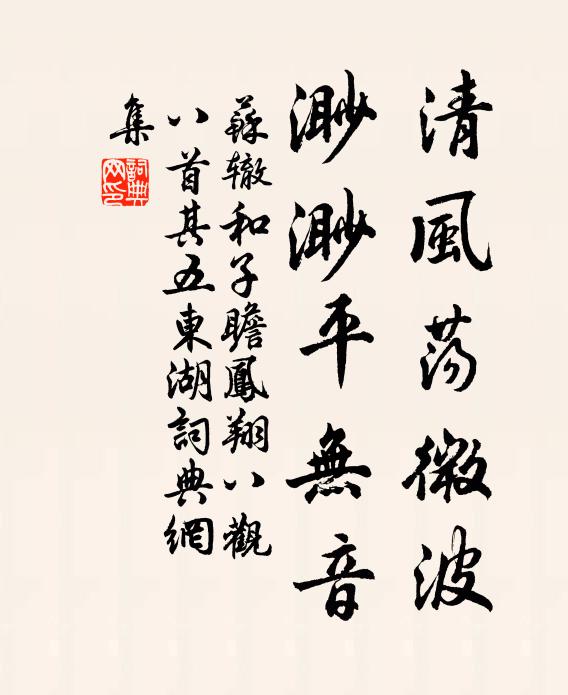 清風蕩微波
渺渺平無音
蘇辙和子瞻鳳翔八觀
八首其五東湖詞典網
集
詞典
网印